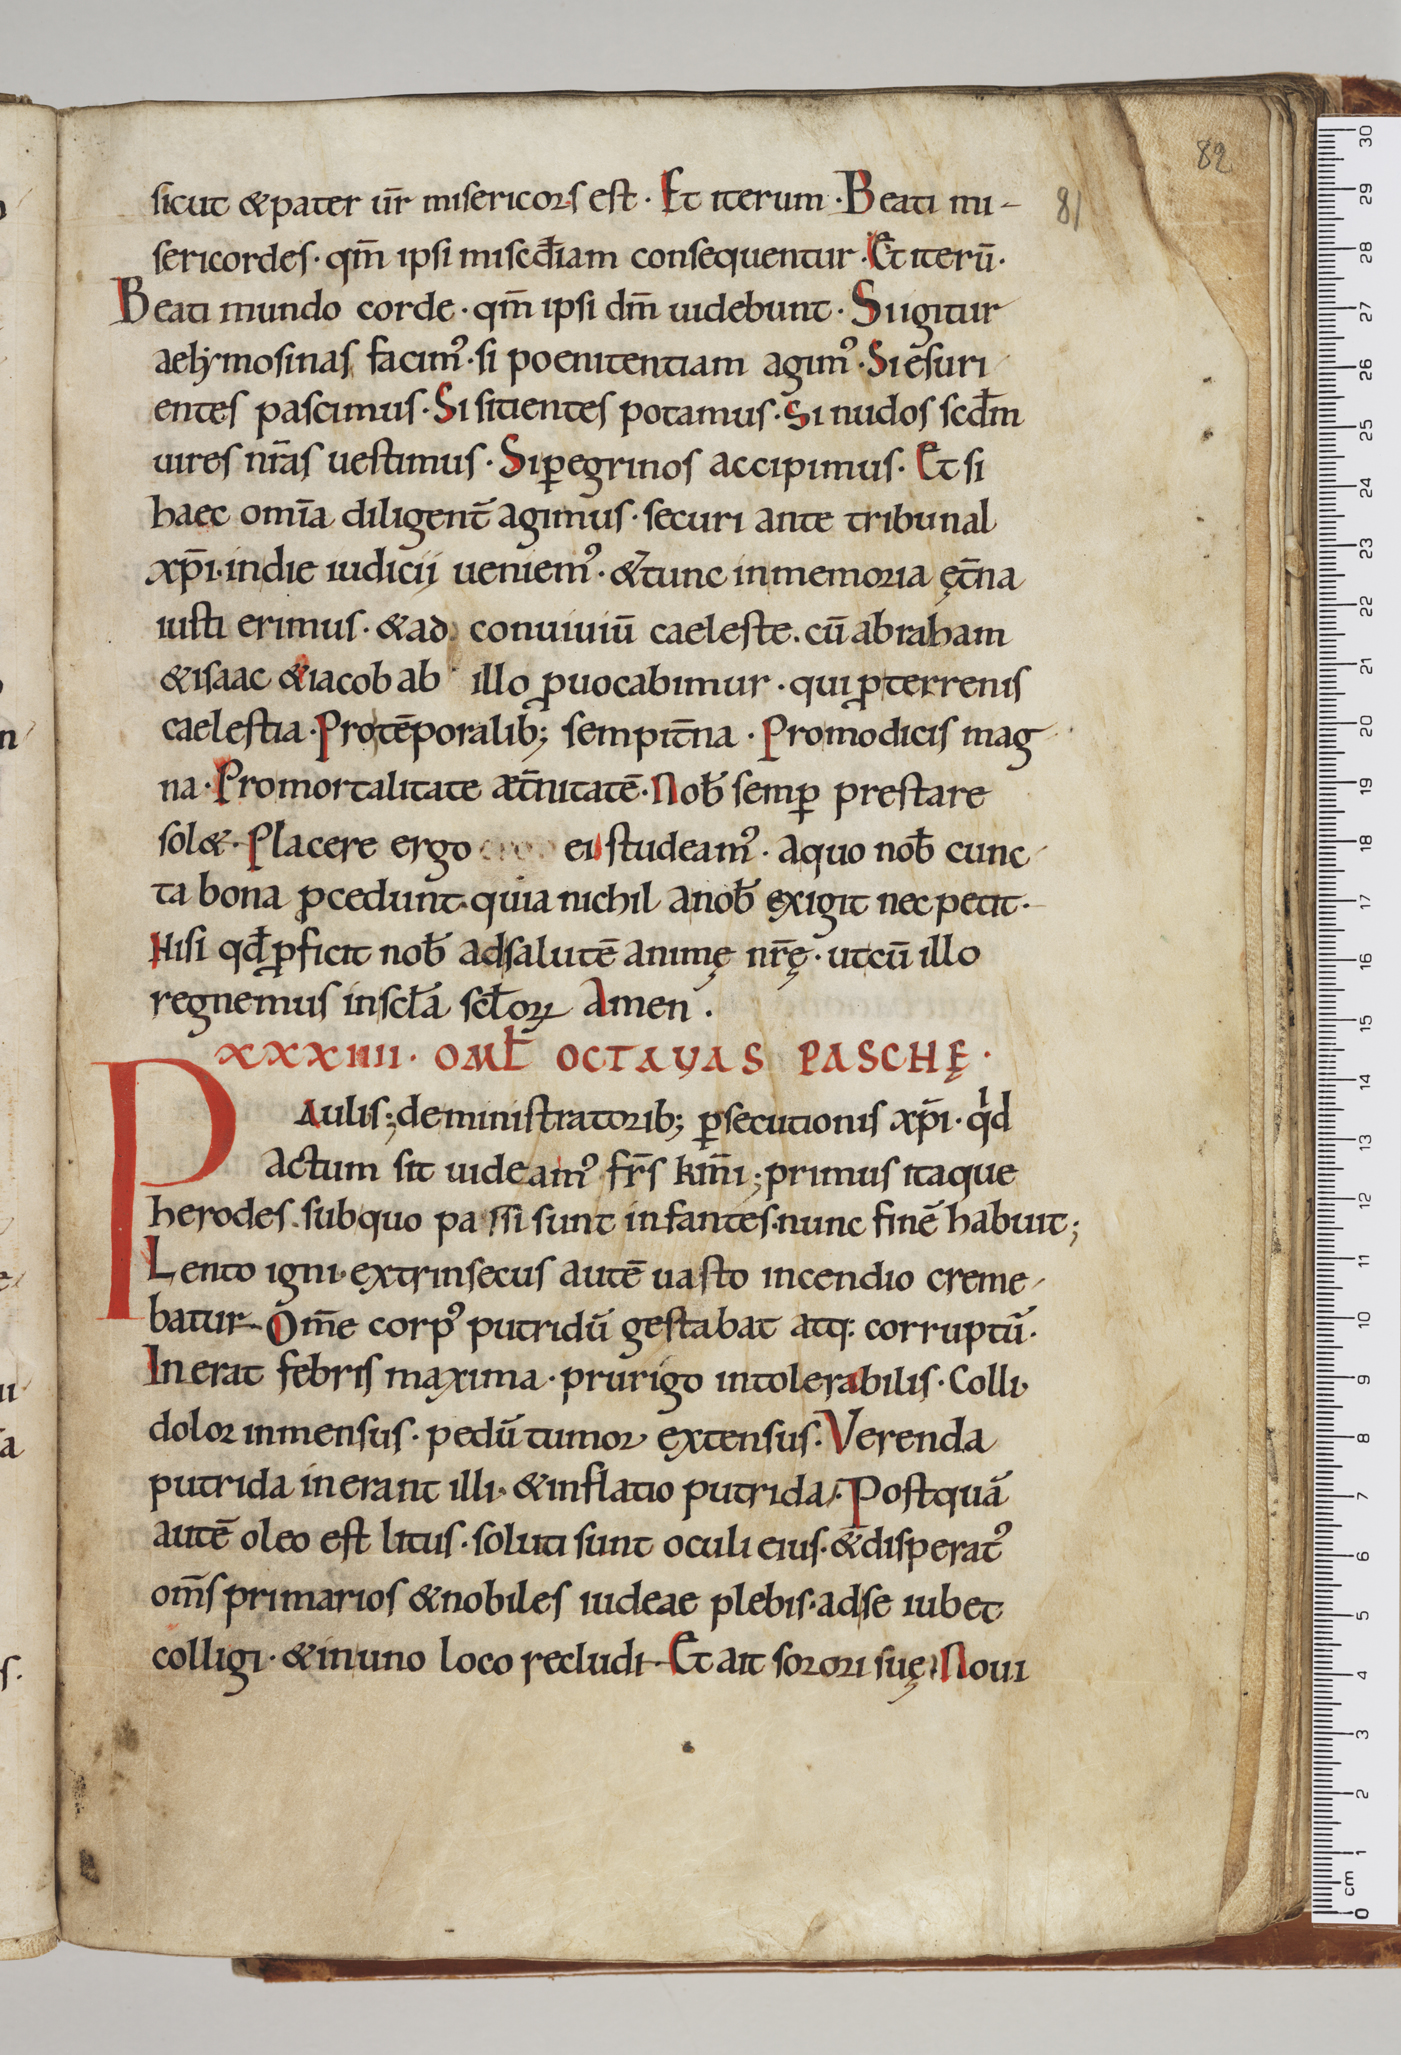 82
81
sicut & pater ur̄ misericors est · Et iterum · Beati mi-
sericordes · qm̄ ipsi miscđiam consequentur · Et iterū ·
Beati mundo corde · qm̄ ipsi dm̄ uidebunt · Si igitur
aelymosinas facim᾽ · si poenitentiam agim᾽ · Si esuri
entes pascimus · Si sitientes potamus · Si nudos scđm
uires nr̄as uestimus · Si ꝑegrinos accipimus · Et si
haec om̄ia diligent̄ agimus · securi ante tribunal
xp̄i · in die iudicij ueniem᾽ · & tunc in memoria ęt̄na
iusti erimus · & ad conuiuiū caeleste · cū abraham
& isaac & iacob ab illo ꝓuocabimur · qui ꝓ terrenis
caelestia · Pro tēporalib; sempit̄na · Pro modicis mag
na · Pro mortalitate æt̄nitatē · Nob̄ semꝑ prestare
sol& · Placere ergo ei studeam᾽ · a quo nob̄ cunc
ta bona ꝓcedunt · quia nichil a nob̄ exigit nec petit ·
Nisi qđ ꝓficit nob̄ ad salutē animę nr̄ę · ut cū illo
regnemus in scł̄a scł̄oꝝ Amen .
XXXIIII · OMŁ OCTAVAS PASCHĘ ·
PAulis; de ministratorib; ꝑsecutionis xp̄i · qid
actum sit uideam᾽ fr̄s km̄i; primus itaque
herodes · sub quo passi sunt infantes · nunc finē habuit;
Lento igni · extrinsecus autē uasto incendio creme
batur · Om̄e corp᾽ putridū gestabat atq: corruptū ·
Inerat febris maxima · prurigo intolerabilis · Colli
dolor inmensus · pedū tumor extensus · Verenda
putrida inerant illi · & inflatio putrida · Postquā
autē oleo est litus · soluti sunt oculi eius · & disperat᾽
om̄s primarios & nobiles iudeae plebis · ad se iubet
colligi · & in uno loco recludi · Et ait sorori suę · Noui